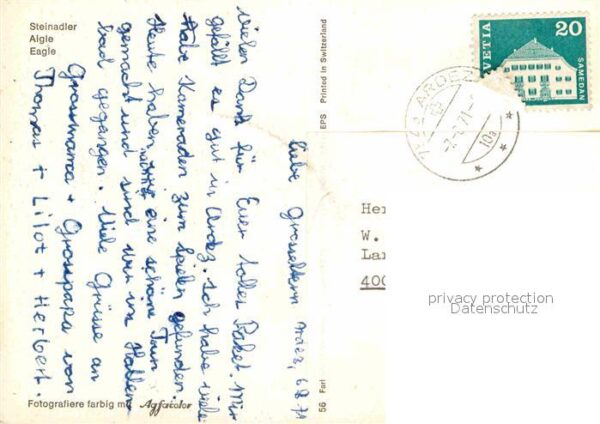 Steinadler
Aigle
Eagle
Liebe Grosseltern Ardez, 6.8.71
Vielen Dank für Euer tolles Paket. Mir
gefällt es gut in Ardez. Ich habe viele
Habe Kameraden zum Spielen gefunden.
Heute haben wir eine schöne Tour
gemacht und sind wir im Hallen
bad gegangen. Viele Grüsse an
Grossmama + Grosspapa von
Thomas + Lilot + Herbert.
Fotografiere farbig mit Agfacolor
EPS Printed in Switzerland
56 Farl
HELVETIA 20
SAMEDAN
ARDEZ
10a
Her
W.
Lan
400
privacy protection
Datenschutz